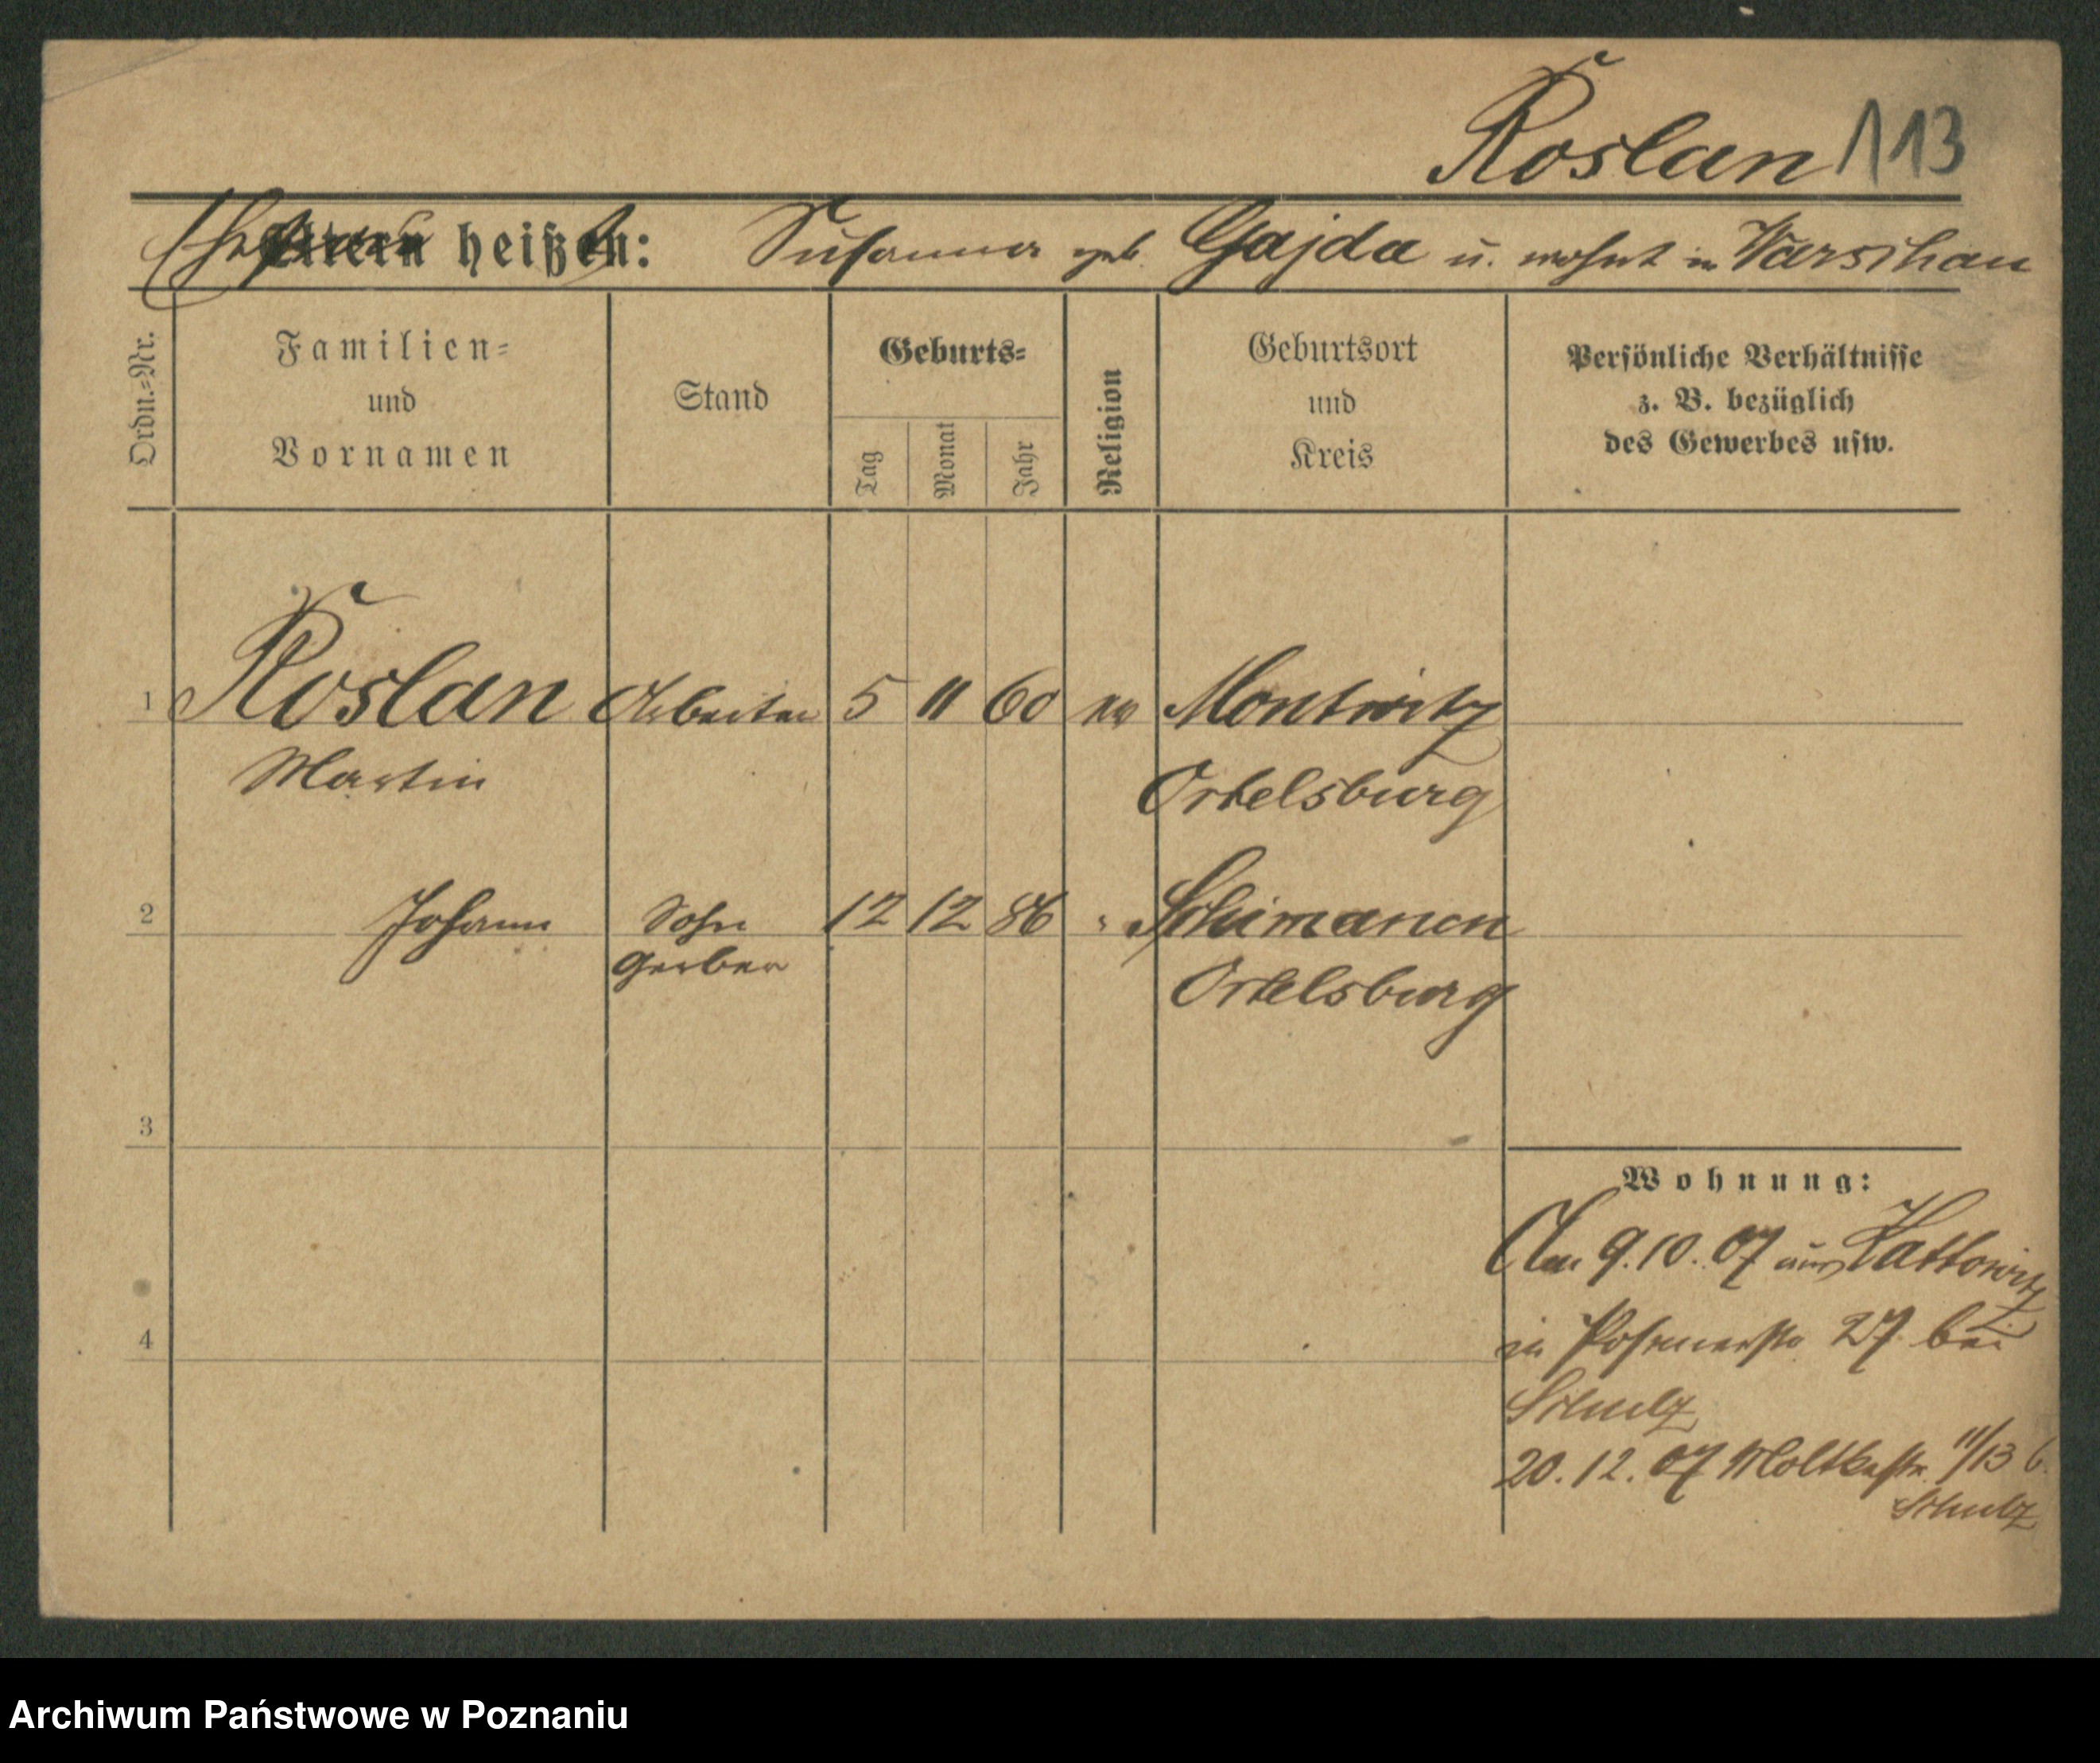 Roslan 113
Ehefrau heißt: Susanna geb. Gajda u. wohnt in Warschau
Ordn.=Nr.
Familien=
und
Vornamen
Stand
Geburts=
Tag
Monat
Jahr
Religion
Geburtsort
und
Kreis
Persönliche Verhältnisse
z. B. bezüglich
des Gewerbes usw.
1 Roslan Arbeiter 5 11 60 Montwitz
Martin Ortelsburg
2 Johann Sohn 12 12 86 " Schimanen
Gerber Ortelsburg
3
Wohnung:
Am 9.10.07 aus Kattowitz
4
in Posenerstr. 27 bei
Schulz
20.12.07 Moltkestr. 11/13 b.
Schulz
Archiwum Państwowe w Poznaniu